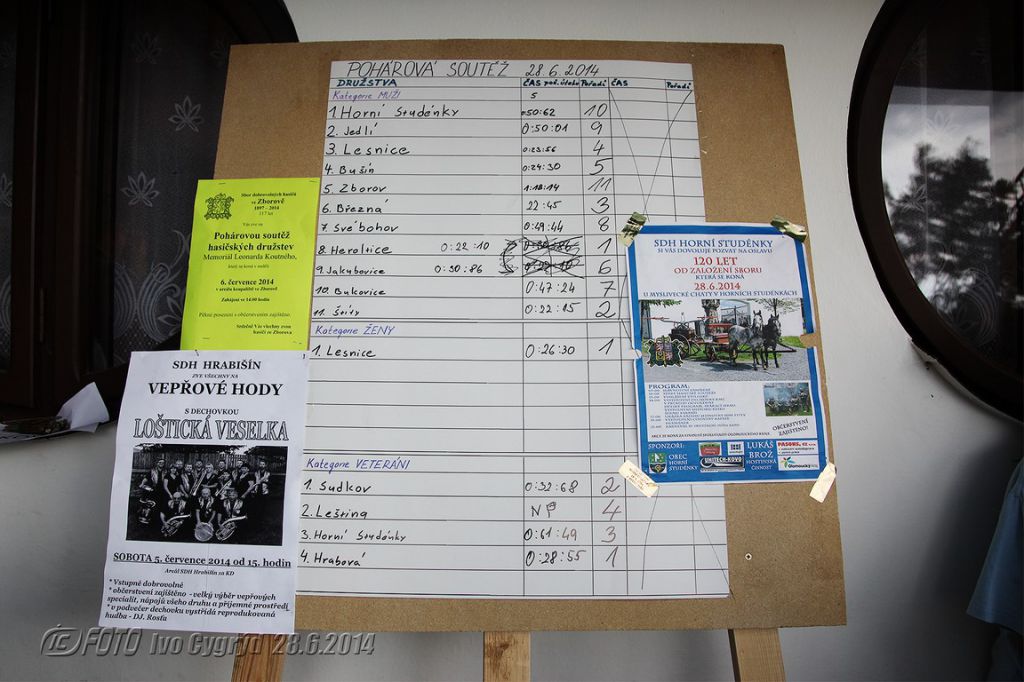 POHÁROVÁ SOUTĚŽ 28.6.2014
DRUŽSTVA ČAS Pořadí ČAS Pořadí
Kategorie MUŽI 5
1. Horní Studénky 50:62 10
2. Jedlí 0:50:01 9
3. Lesnice 0:23:56 4
4. Bušín 0:24:30 5
5. Zborov 1:18:14 11
6. Březná 22:45 3
7. Svébohov 0:49:44 8
8. Heroltice 0:22:10 1
9. Jakubovice 0:30:86 6
10. Bukovice 0:47:24 7
11. 0:22:15 2
Kategorie ŽENY
1. Lesnice 0:26:30 1
Kategorie VETERÁNI
1. Sudkov 0:32:68 2
2. Leština NP 4
3. Horní Studénky 0:61:49 3
4. Hrabová 0:28:55 1
Sbor dobrovolných hasičů
ve Zborově
1897 - 2014
117 let
Vás zve na
Pohárovou soutěž
hasičských družstev
Memoriál Leonarda Koutného,
která se koná v neděli
6. července 2014
v areálu koupaliště ve Zborově
Zahájení ve 14.00 hodin
Pěkné posezení s občerstvením zajištěno.
Srdečně Vás všechny zvou
hasiči ze Zborova
SDH HRABIŠÍN
ZVE VŠECHNY NA
VEPŘOVÉ HODY
S DECHOVKOU
LOŠTICKÁ VESELKA
SOBOTA 5. července 2014 od 15. hodin
Areál SDH Hrabišín za KD
* Vstupné dobrovolné
* občerstvení zajištěno - velký výběr vepřových
specialit, nápojů všeho druhu a příjemné prostředí
* v podvečer dechovku vystřídá reprodukovaná
hudba - DJ. Rosťa
SDH HORNÍ STUDÉNKY
SI VÁS DOVOLUJE POZVAT NA OSLAVU
120 LET
OD ZALOŽENÍ SBORU
KTERÁ SE KONÁ
28.6.2014
U MYSLIVECKÉ CHATY V HORNÍCH STUDÉNKÁCH
PROGRAM:
OBČERSTVENÍ
ZAJIŠTĚNO!
SPONZOŘI:
OBEC
HORNÍ
STUDÉNKY
UNITECH-KOVO
LUKÁŠ
BROŽ
HOSTINSKÁ
ČINNOST
PASORS, cz
Olomoucký kraj
FOTO Ivo Cygryd 28.6.2014